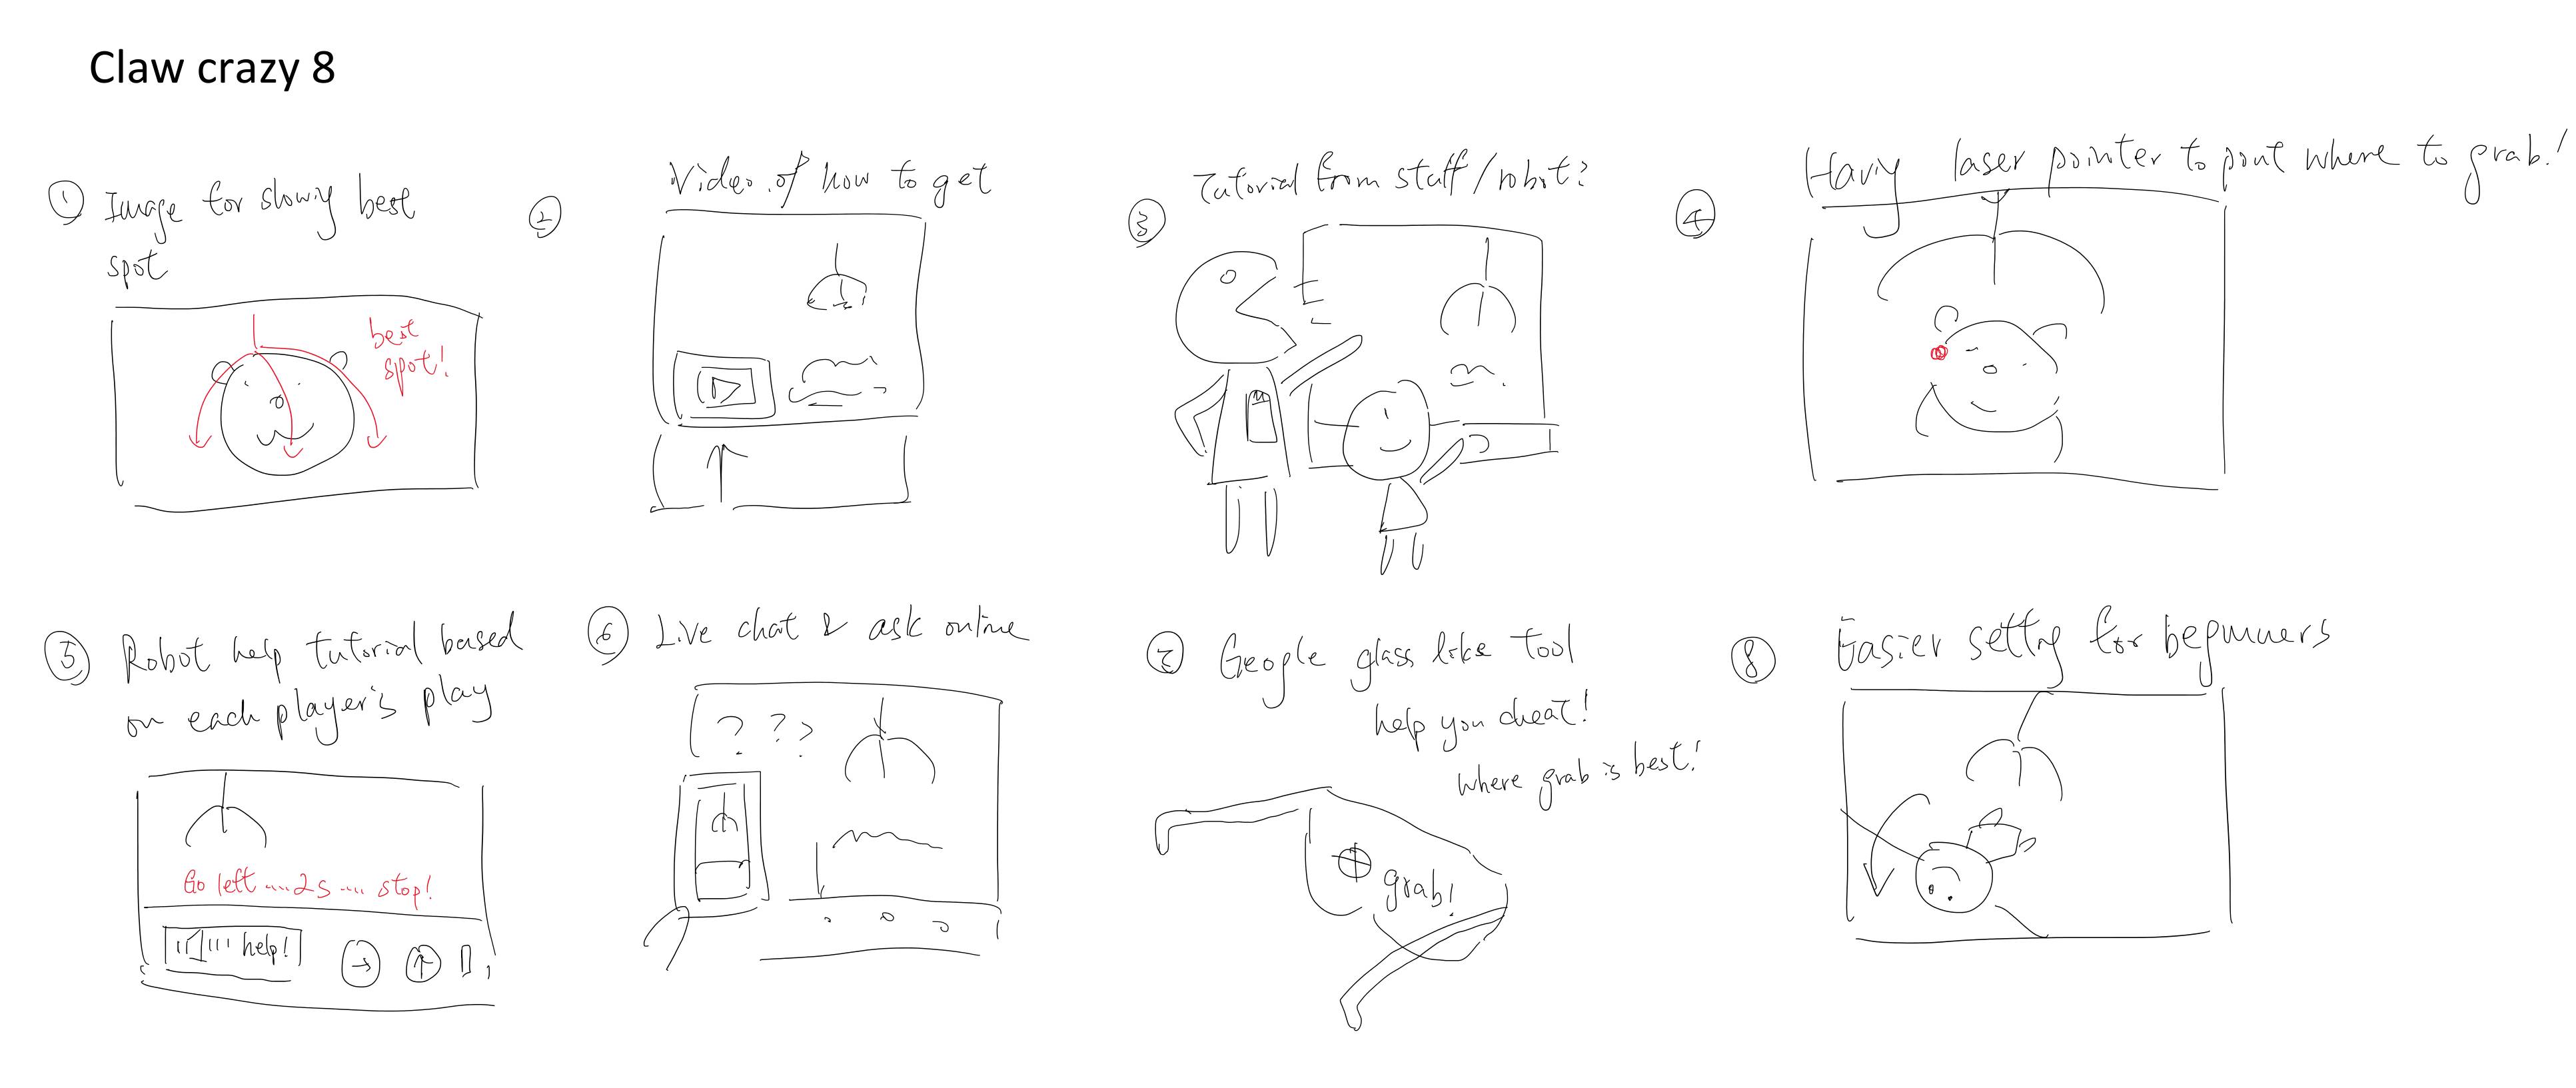 Claw crazy 8
① Image for showing best
spot
best
spot!
②
Video of how to get
③
Tutorial from staff/robot?
④
Having laser pointer to point where to grab!
⑤ Robot help tutorial based
on each player's play
Go left ....2s.... stop!
help!
⑥ Live chat & ask online
? ? ?
⑦ Geogle glass like tool
help you cheat!
where grab is best!
grab!
⑧ Easier setting for beginners